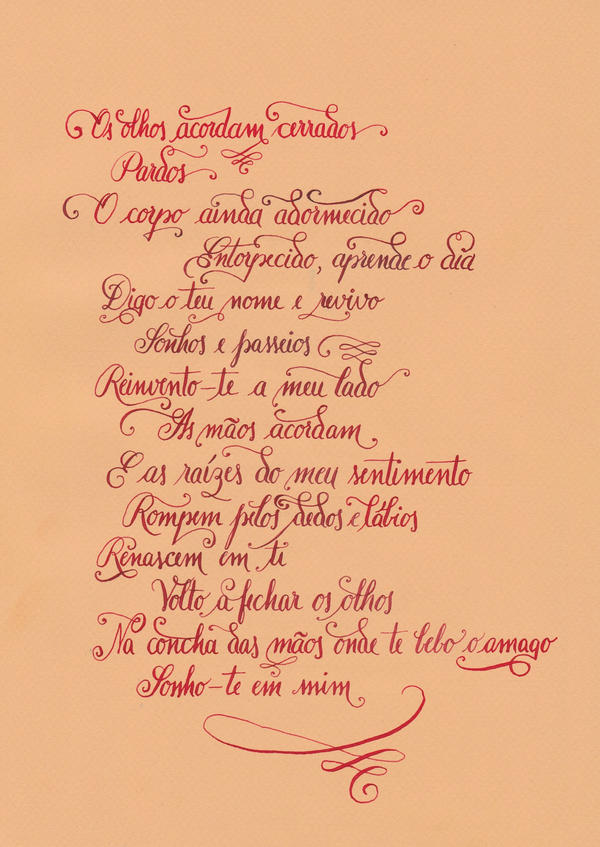 Os olhos acordam cerrados
Pardos
O corpo ainda adormecido
Entorpecido, aprende o dia
Digo o teu nome e revivo
Sonhos e passeios
Reinvento-te a meu lado
As mãos acordam
E as raízes do meu sentimento
Rompem pelos dedos e lábios
Renascem em ti
Volto a fichar os olhos
Na concha das mãos onde te bebo o amago
Sonho-te em mim